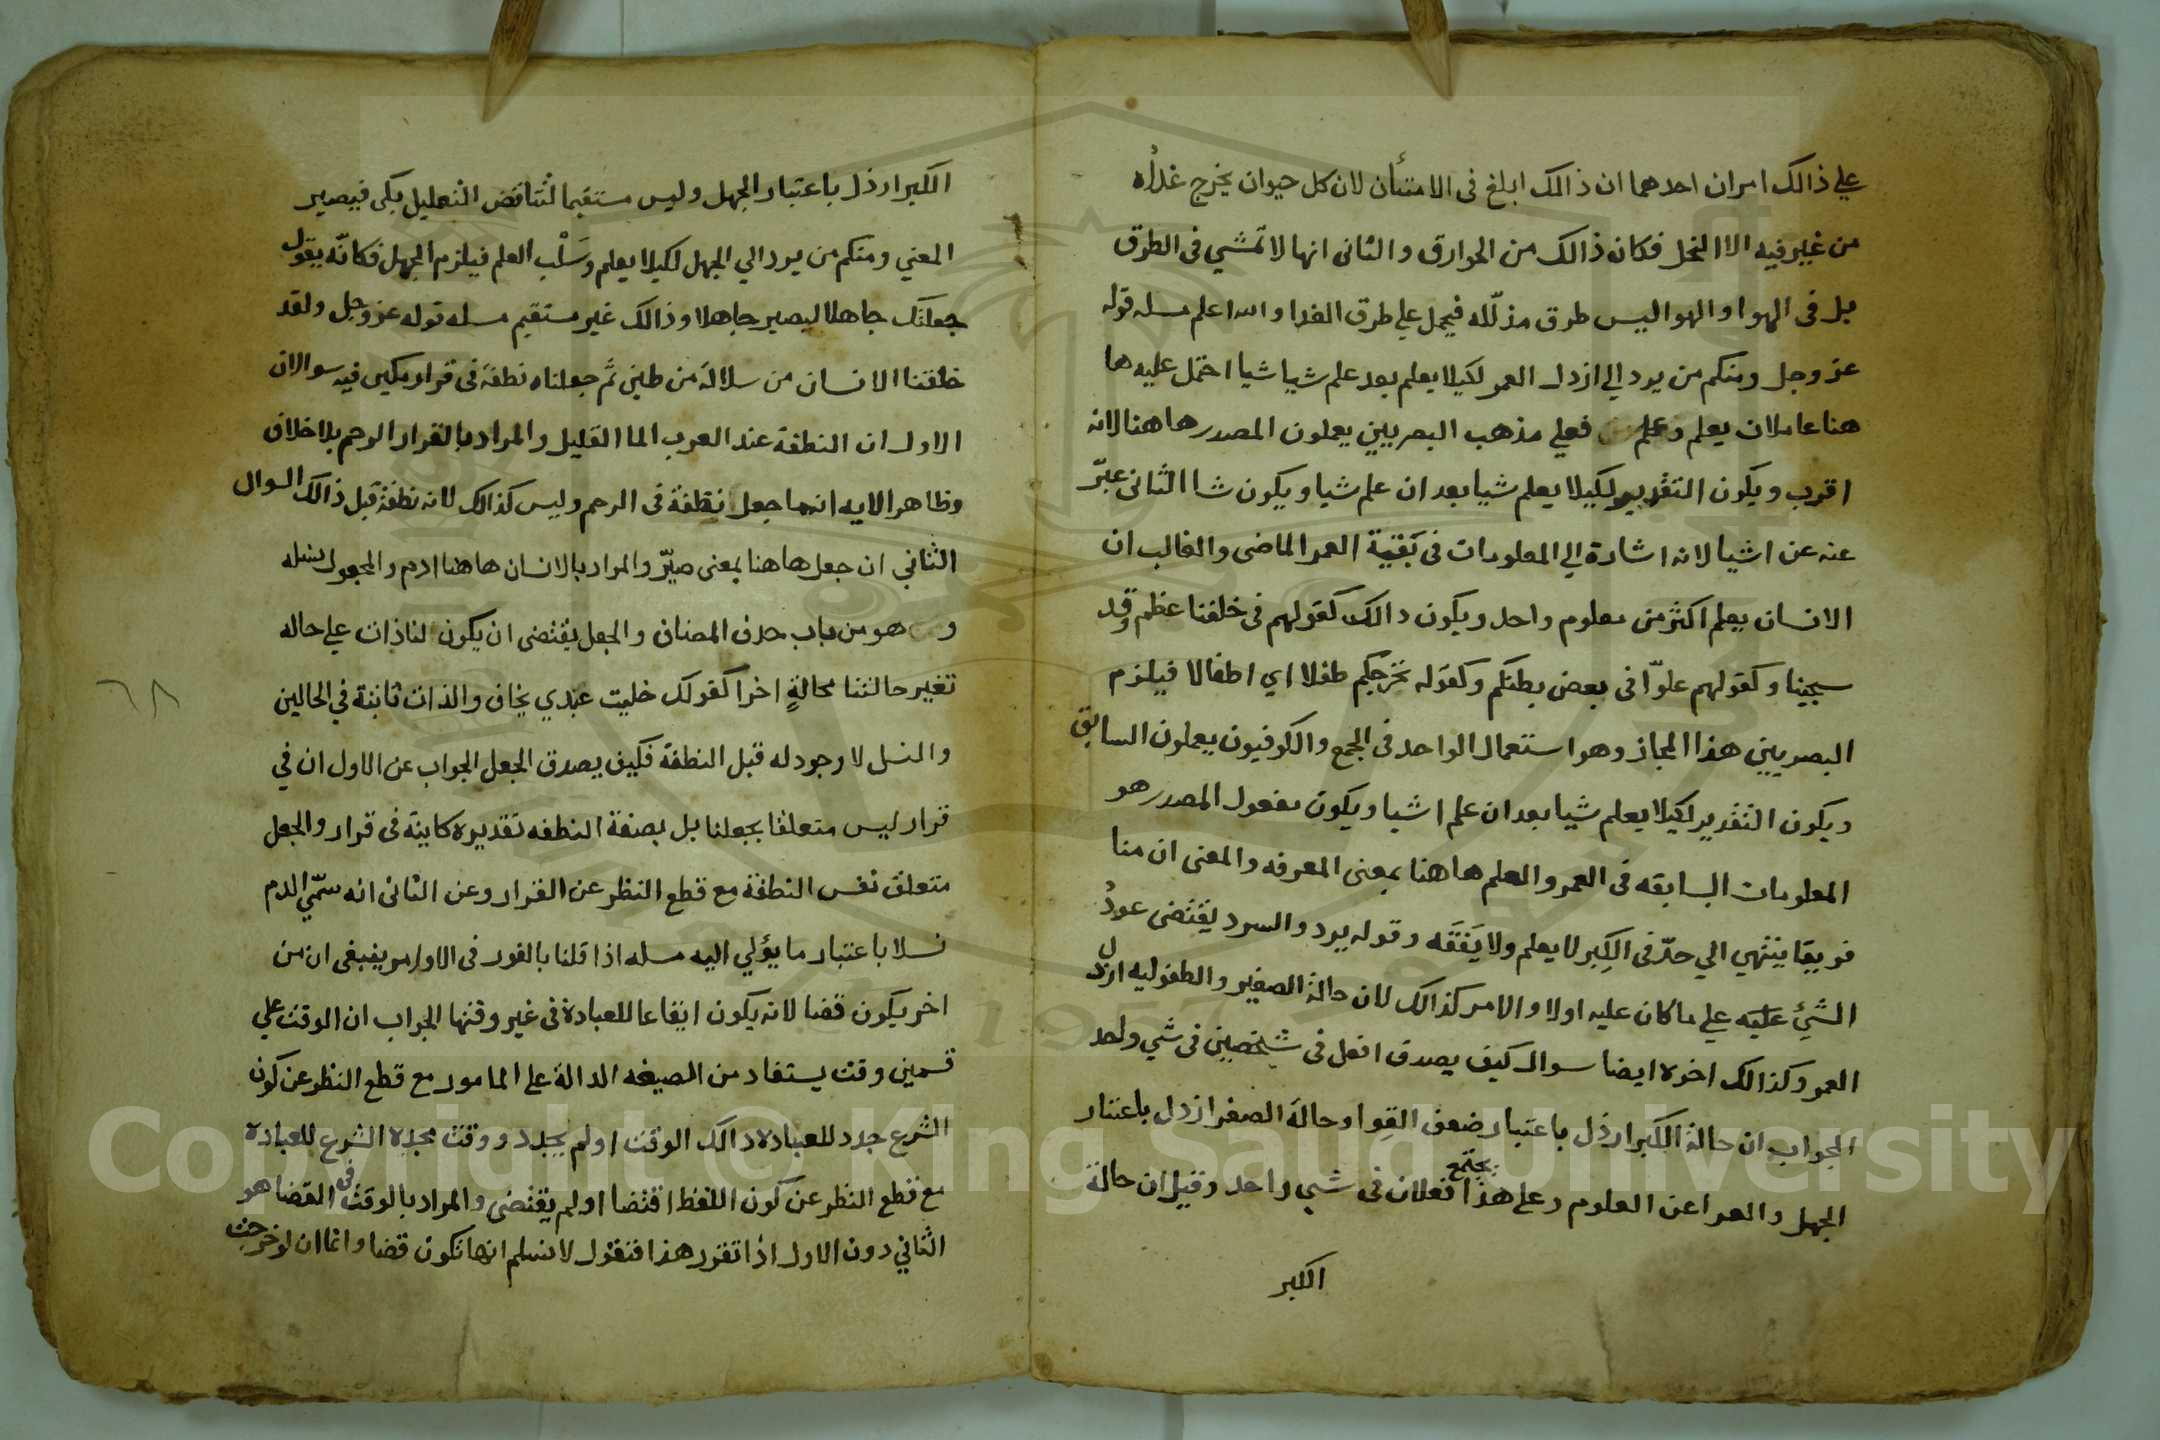 علي ذالك امران احدهما ان ذالك ابلغ فى الامتنأن لان كل حيوان يخرج غداُه
من غير فيه الا النحل فكان ذالك من الخوارق والثانى انها لا تمشي فى الطرق
بل فى الهوا والهوا ليس طرق مذلّله فيحمل علي طرق الغدا والله اعلم مسله قوله
عز وجل ومنكم من يرد الي ارذل العمر لكيلا يعلم بعد علم شيا شيا احتمل عليه ها
هنا عاملان يعلم وعلم فعلي مذهب البصريين يعملون المصدر هاهنا لانه
اقرب ويكون التقدير لكيلا يعلم شيا بعد ان علم شيا ويكون شا الثانى عبّر
عنه عن اشيا لانه اشارة الي المعلومات فى بَقيّة العمر الماضى والغالب ان
الانسان يعلم اكثر من معلوم واحد ويكون دالك كقولهم فى خلقنا عظم وقد
سجينا وكقولهم علوّا فى بعض بطنكم وكقوله نخرجكم طفلا اي اطفالا فيلزم
البصريين هذا المجاز وهو استعمال الواحد فى الجمع والكوفيون يعملون السابق
ويكون التقدير لكيلا يعلم شيا بعد ان علم اشيا ويكون مفعول المصدر هو
المعلومات السابقه فى العمر والعلم هاهنا بمعنى المعرفه والمعنى ان منا
فريقا ينتهي الي حدّ فى الكِبر لا يعلم ولا يَفقَه وقوله يرد والسرد يقتضى عودُ
الشَئِ عليه علي ما كان عليه اولا والامر كذالك لان حالة الصغير والطفوليه ارذل
العمر وكذالك اخره ايضا سوال كيف يصدق افعل فى شخصين فى شي واحد
الجواب ان حالة الكبر ارذل باعتبار ضعف القِوا وحالة الصغر ارذل باعتبار
الجهل والعرا عن العلوم وعلي هذا يجتمع افعلان فى شي واحد وقيل ان حالة
الكبر
الكبر ارذل باعتبار الجهل وليس مستقيما لتناقض التعليل بكى فيصير
المعني ومنكم من يرد الي الجهل لكيلا يعلم وسَلْب العلم فيلزم الجهل فكانّه يقول
جعلتك جاهلا ليصير جاهلا وذالك غير مستقيم مسله قوله عز وجل ولقد
خلقنا الانسان من سلالة من طين ثم جعلناه نطفة فى قرار مكين فيه سوالان
الاول ان النطفة عند العرب الما القليل والمراد بالقرار الرحم بلا خلاف
وظاهر الايه انها جعل نطفة فى الرحم وليس كذالك لانه نطفة قبل ذالك السوال
الثاني ان جعل هاهنا بمعنى صيّر والمراد بالانسان هاهنا ادم والمجعول نسله
و هو من باب حدف المضاف والجعل يقتضى ان يكون لنا ذات علي حاله
تغير حالتنا بحالةٍ اخرا كقولك خليت عبدي يخاف والذات ثابتة في الحالين
والنسل لا وجود له قبل النطفة فكيف يصدق الجعل الجواب عن الاول ان في
قرار ليس متعلقا بجعلنا بل بصفة النطفه تقديره كاينة فى قرار والجعل
متعلق نفس النطفة مع قطع النظر عن القرار وعن الثانى انه سمّي الدم
نسلا باعتبار ما يؤلي اليه مسله اذا قلنا بالفور فى الاوامر ينبغى ان من
اخر يكون قضا لانه يكون ايقاعا للعبادة فى غير وقتها الجواب ان الوقت علي
قسمين وقت يستفاد من الصيغه الدالة علي المامور مع قطع النظر عن كون
الشرع جدد للعبادة دالك الوقت او لم يجدد ووقت يجده الشرع للعبادة
مع قطع النظر عن كون اللفظ اقتضا او لم يقتضى والمراد بالوقت فى القضا هو
الثاني دون الاول اذا تقرر هذا فنقول لا نسلم انها تكون قضا وانما ان لو خرجت
٦٨
Copyright © King Saud University
1957